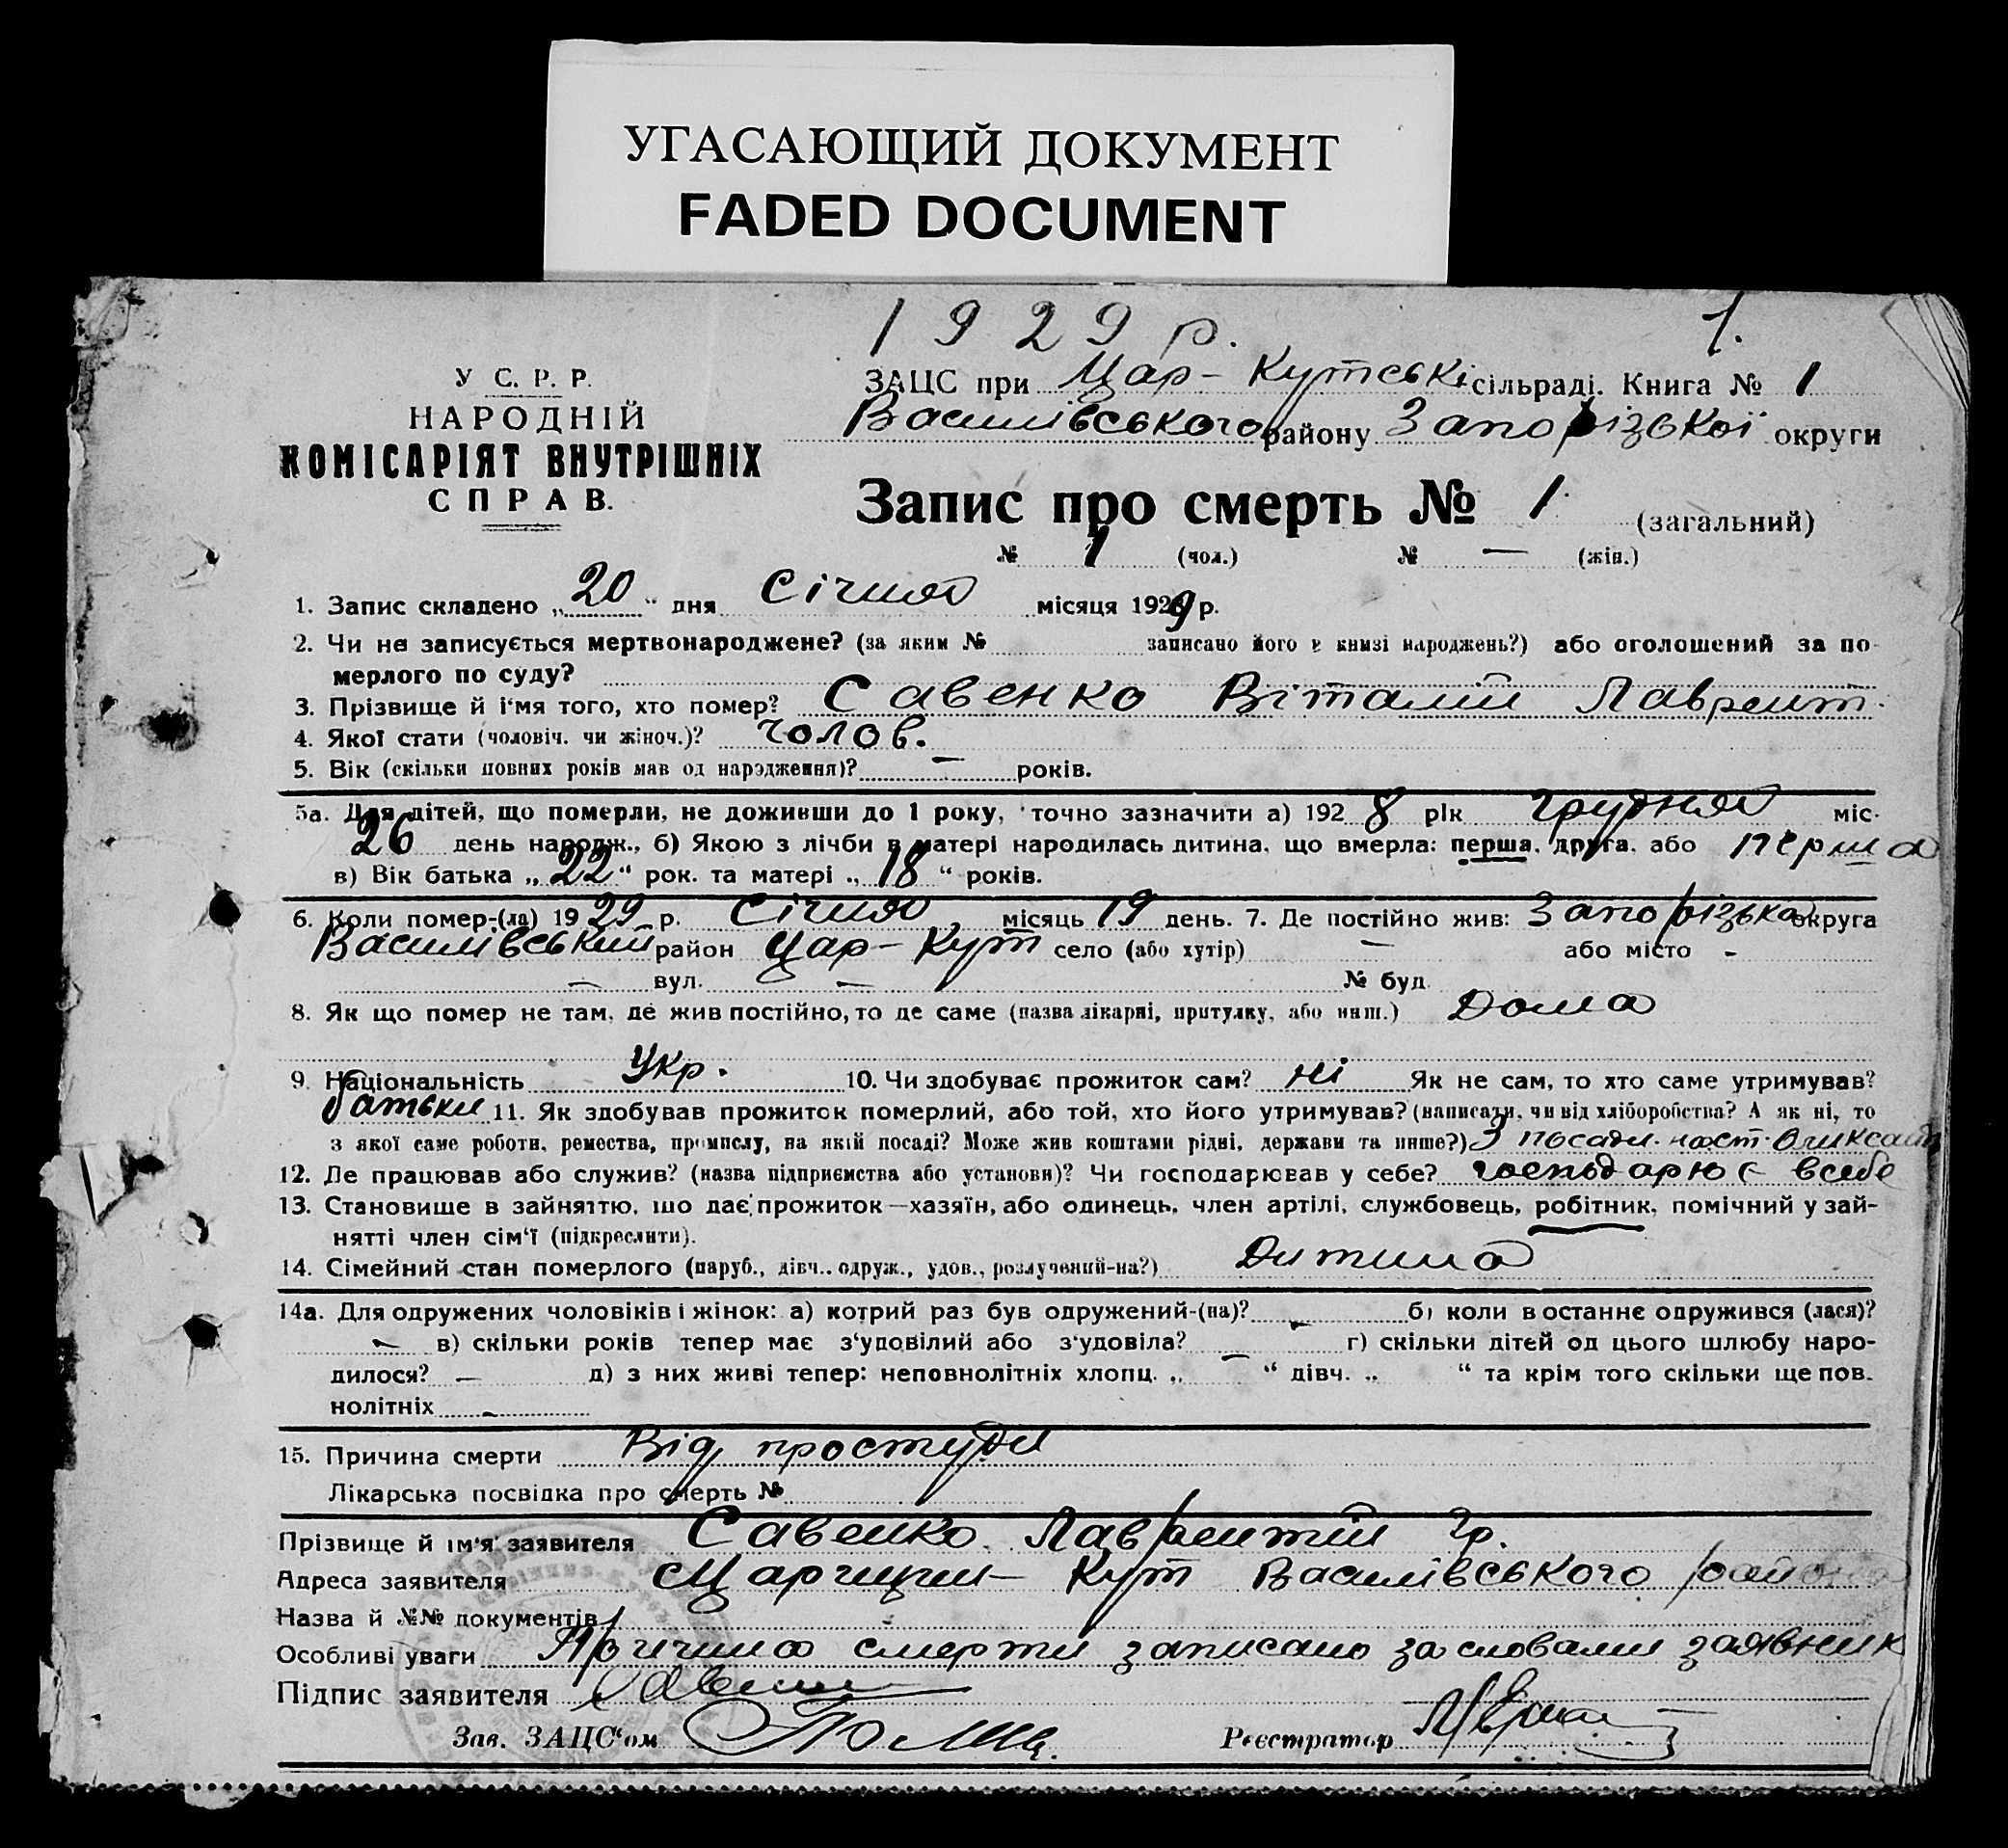 УГАСАЮЩИЙ ДОКУМЕНТ
FADED DOCUMENT
1929 р. 1.
У С. Р. Р.
НАРОДНІЙ
КОМІСАРІЯТ ВНУТРІШНІХ
СПРАВ.
ЗАЦС при Цар-Кутські сільраді. Книга № 1
Василівського району Запорізької округи
Запис про смерть № 1 (загальний)
№ 1 (чол.) № — (жін.)
1. Запис складено „20“ дня Січня місяця 1929 р.
2. Чи не записується мертвонароджене? (за яким № записано його в книзі народжень?) або оголошений за по-
мерлого по суду?
3. Прізвище й ім'я того, хто помер? Савенко Віталій Лаврент.
4. Якої стати (чоловіч. чи жіноч.)? Чолов.
5. Вік (скільки повних років мав од народження)? — років.
5а. Для дітей, що померли, не доживши до 1 року, точно зазначити а) 1928 рік грудня міс.
26 день народж., б) Якою з лічби в матері народилась дитина, що вмерла: перша, друга, або перша
в) Вік батька „22“ рок. та матері „18“ років.
6. Коли помер-(ла) 1929 р. Січня місяць 19 день. 7. Де постійно жив: Запорізька округа
Василівський район Цар-Кут село (або хутір) — або місто -
— вул. — № буд.
8. Як що помер не там, де жив постійно, то де саме (назва лікарні, притулку, або инш.) Дома
9. Національність Укр. 10. Чи здобуває прожиток сам? ні Як не сам, то хто саме утримував?
батьки 11. Як здобував прожиток померлий, або той, хто його утримував? (написати, чи від хліборобства? А як ні, то
з якої саме роботи, ремества, промислу, на якій посаді? Може жив коштами рідні, держави та инше?) З посади
12. Де працював або служив? (назва підприємства або установи)? Чи господарював у себе? господарює в себе
13. Становище в зайняттю, що дає прожиток—хазяїн, або одинець, член артілі, службовець, робітник, помічний у зай-
нятті член сім'ї (підкреслити).
14. Сімейний стан померлого (паруб., дівч., одруж., удов., розлучений-на?) Дитина
14а. Для одружених чоловіків і жінок: а) котрий раз був одружений-(на)? - б) коли в останнє одружився (лася)?
- в) скільки років тепер має з'удовілий або з'удовіла? — г) скільки дітей од цього шлюбу наро-
дилося? — д) з них живі тепер: неповнолітніх хлопц. „ “ дівч. „ “ та крім того скільки ще пов-
нолітніх -
15. Причина смерти Від простуди
Лікарська посвідка про смерть №
Прізвище й ім'я заявителя Савенко Лаврентій Гр.
Адреса заявителя Царицин-Кут Василівського района
Назва й №№ документів -
Особливі уваги Причина смерти записано за словами заявник
Підпис заявителя Савенко
Зав. ЗАЦС'ом
Реєстратор